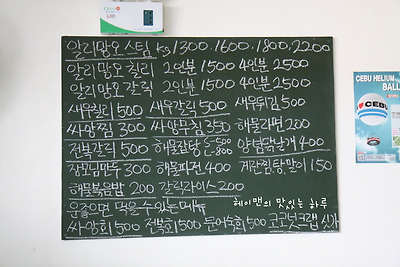 알리망오 스팀 kg 1300. 1600. 1800. 2200
알리망오 칠리 2인분 1500 4인분 2500
알리망오 갈릭 2인분 1500 4인분 2500
새우칠리 500 새우갈릭 500 새우튀김 500
싸앙찜 300 싸앙무침 350 해물라면 200
전복갈릭 500 해물잡탕 S-500 L-800 양념닭날개 400
장모님만두 300 해물파전 400 계란찜탕,말이 150
해물볶음밥 200 갈릭라이스 200
운좋으면 먹을수있는메뉴
싸앙회 1500 전복회 1500 문어숙회 500 코코넛크랩 싯가
헤이맨의 맛있는 하루
CEBU HELIUM
BALL
I CEBU